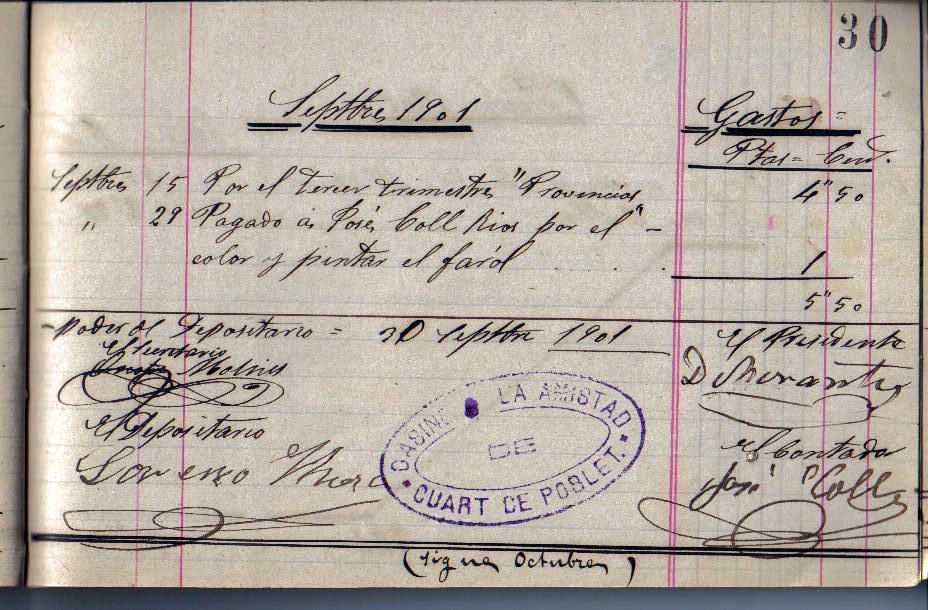 30
Septbre 1901 Gastos =
Ptas = Cent.
Septbre 15 Por el tercer trimestre "Provincias" 4" 50
" 29 Pagado á José Coll Rios por el -
color y pintar el faról . . . 1
5" 50
Poder del Depositario = 30 Septbre 1901
El Presidente
El Secretario
Molins
D Morante
El Depositario
El Contador
Lorenzo
José Coll
CASINO LA AMISTAD
DE
CUART DE POBLET.
(Sigue Octubre)